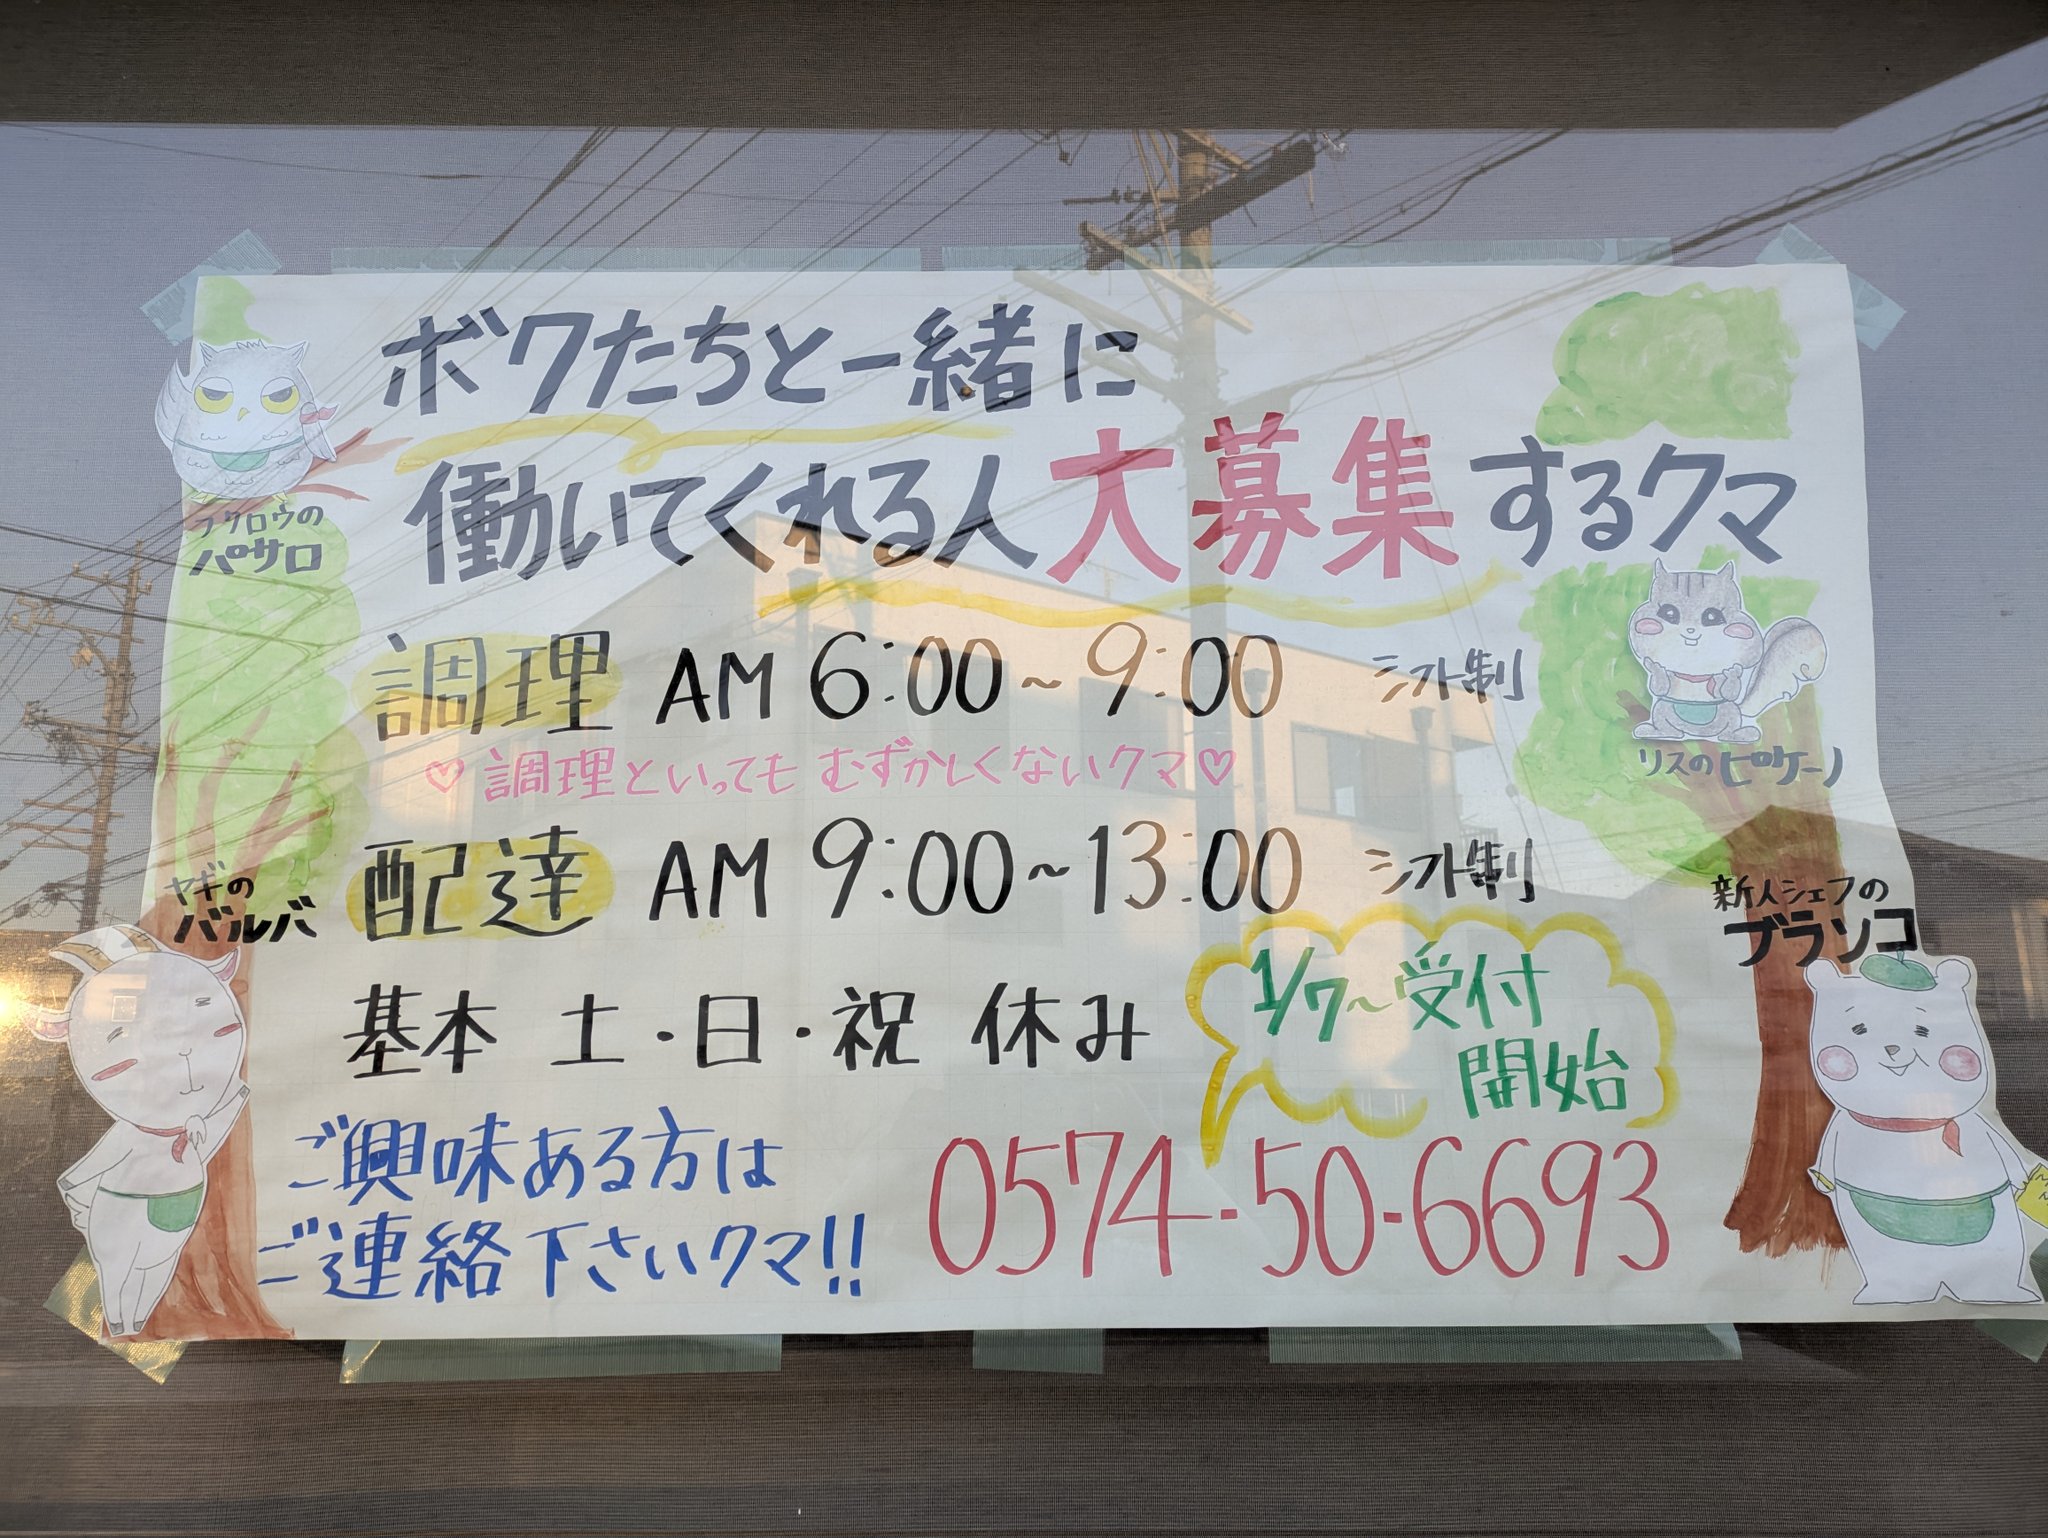 ボクたちと一緒に
働いてくれる人大募集するクマ
フクロウの
パサロ
調理 AM 6:00~9:00 シフト制
♡調理といってもむずかしくないクマ♡
リスのピケーノ
配達 AM 9:00~13:00 シフト制
ヤギの
バルバ
新人シェフの
ブランコ
基本 土・日・祝 休み
1/7~受付
開始
ご興味ある方は
ご連絡下さいクマ!!
0574-50-6693